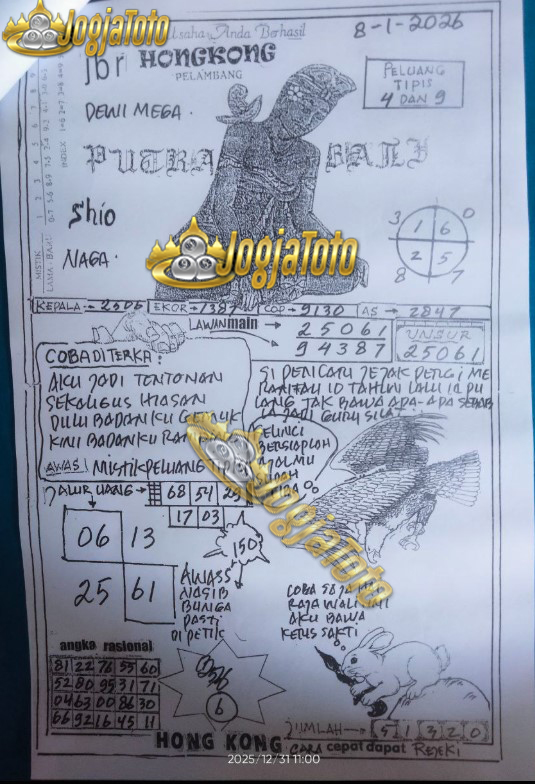 JogjaToto
usaha Anda Berhasil
8-1-2026
jbr HONGKONG
PELAMBANG
PELUANG
TIPIS
4 DAN 9
DEWI MEGA.
PUTRA BALI
Shio
NAGA.
MISTIK
LAMA - BARU
INDEX
3 0
1 6
2 5
8 7
JogjaToto
KEPALA → 2506 EKOR → 1387 COP → 9130 AS → 2847
LAWANmain → 25061
→ 94387
UNSUR
25061
COBA DI TERKA:
AKU JADI TONTONAN
SEKALIGUS HIASAN
DULU BADANKU GEMUK
KINI BADANKU
AWAS! MISTIK PELUANG TIPIS
SI PENCARI JEJAK PERGI ME
RANTAU 10 TAHUN LALU IA PU
LANG TAK BAWA APA-APA SEBAB
IA JADI GURU SILAT.
KELINCI
BERSIAPLAH
AJALMU
JALUR UANG → 68 54
17 03
06 13
25 61
150
AWASS
NASIB
BUNGA
PASTI
DI PETIK
COBA SAJA
RAJAWALI
AKU BAWA
KERIS SAKTI
JogjaToto
angka rasional
81 22 76 55 60
52 80 95 31 71
04 63 00 86 30
66 92 16 45 11
6
JUMLAH → 5 1 3 2 0
HONG KONG CARA cepat dapat REJEKI
2025/12/31 11:00